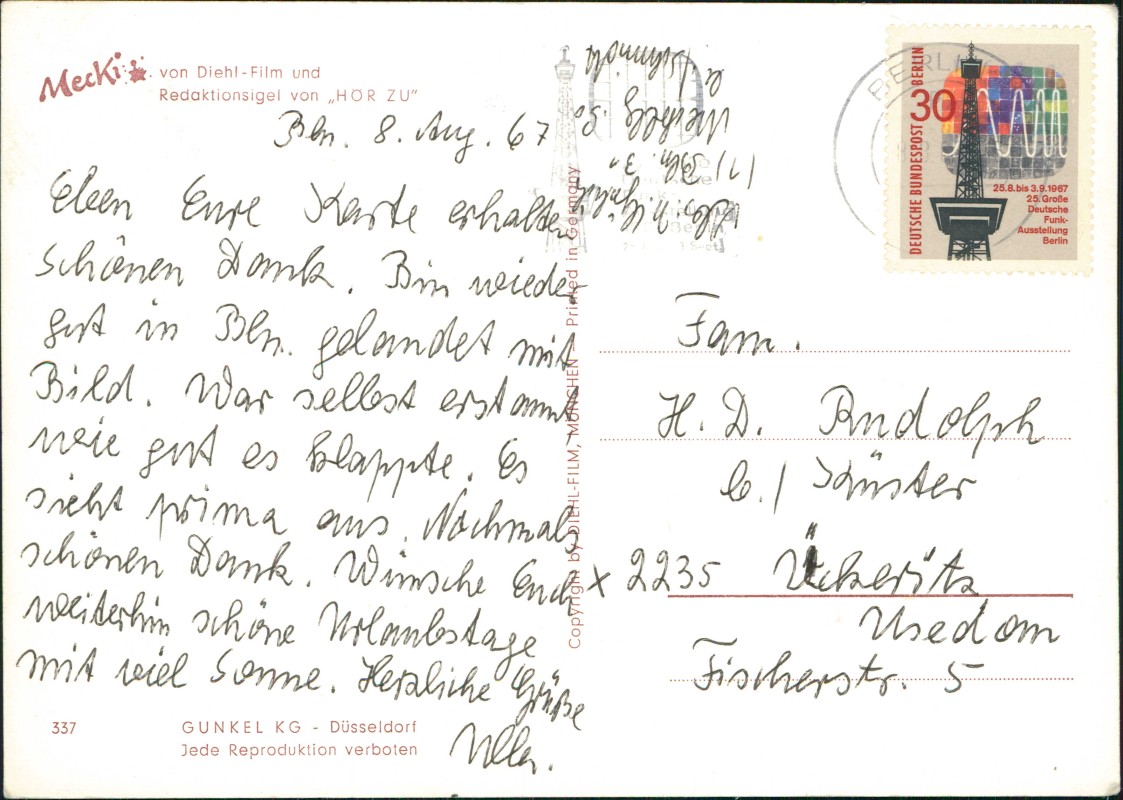 Mecki von Diehl-Film und
Redaktionsigel von „HÖR ZU"
Bln. 8. Aug. 67
Eben Eure Karte erhalten
schönen Dank. Bin wieder
gut in Bln. gelandet mit
Bild. War selbst erstaunt
wie gut es klappte. Es
sieht prima aus. Nochmals
schönen Dank. Wünsche Euch
weiterhin schöne Urlaubstage
mit viel Sonne. Herzliche Grüße
Ulla.
337
GUNKEL KG - Düsseldorf
Jede Reproduktion verboten
Copyright by DIEHL-FILM, MÜNCHEN — Printed in Germany
1/1 Bln. 31
BERLIN
DEUTSCHE BUNDESPOST BERLIN
30
25.8. bis 3.9.1967
25. Große
Deutsche
Funk-
Ausstellung
Berlin
Fam.
H. D. Rudolph
b./ Küster
x 2235 Ückeritz
Usedom
Fischerstr. 5